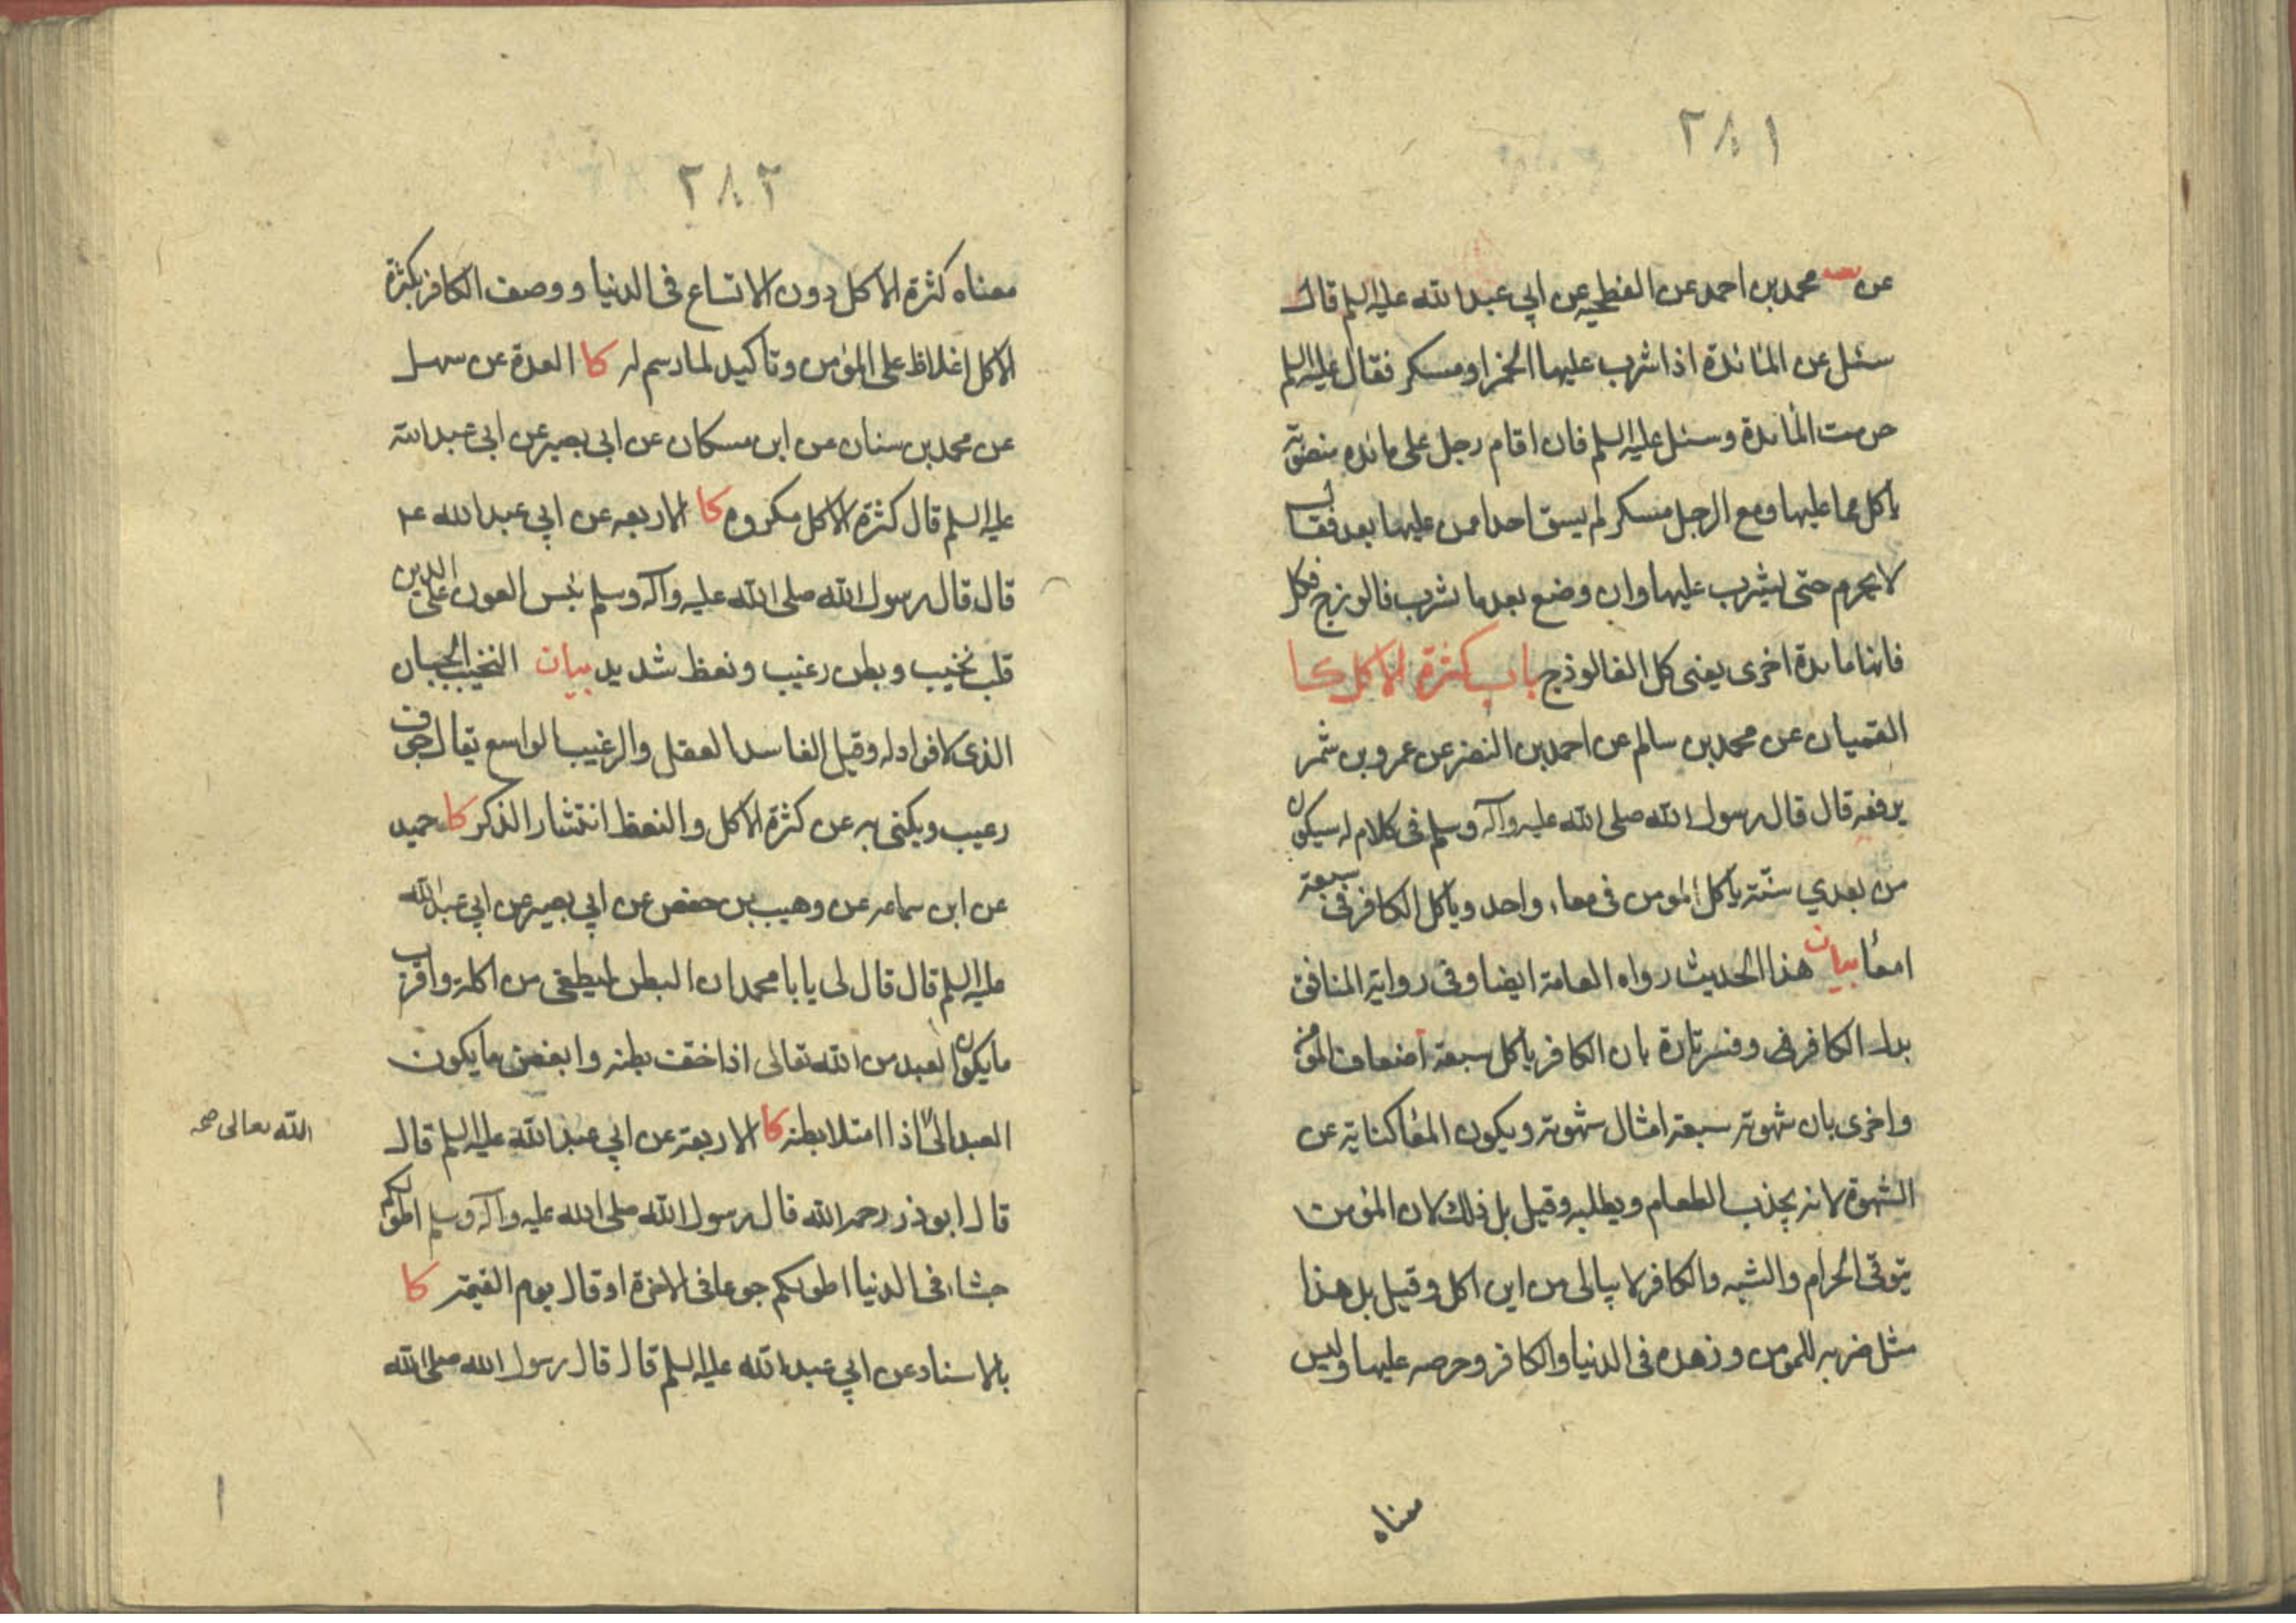 ٢٨١
عن يه محمد بن احمد عن الفطحيه عن ابي عبد الله عليه السلم قال
سئل عن المائدة اذا شرب عليها الخمر او مسكر فقال عليه السلم
حرمت المائدة وسئل عليه السلم فان اقام رجل على مائده منصوبة
ياكل مما عليها ومع الرجل مسكر لم يسق احدا ممن عليها بعد فقال
لا يحرم حتى يشرب عليها وان وضع بعد ما شرب فالوزج فكل
فانها مائدة اخرى يعنى كل الفالوذج باب كثرة الاكل كا
القميان عن محمد بن سالم عن احمد بن النضر عن عمرو بن شمر
يرفعه قال قال رسول الله صلى الله عليه وآله وسلم فى كلام له سيكون
من بعدي سنّة ياكل المومن فى معاء واحد وياكل الكافر فى سبعة
امعاء بيان هذا الحديث رواه العامة ايضا وفى رواية المنافق
بدل الكافر فى وفسر تارة بان الكافر ياكل سبعة اضعاف المؤمن
واخرى بان شهوته سبعة امثال شهوته ويكون المعا كناية عن
الشهوة لانه يجذب الطعام ويطلبه وقيل بل ذلك لان المؤمن
يتوقى الحرام والشبه والكافر لا يبالى من اين اكل وقيل بل هذا
مثل ضربه للمومن وزهده فى الدنيا والكافر وحرصه عليها وليس
معناه
٢٨٢
معناه كثرة الاكل دون الاتساع فى الدنيا ووصف الكافر بكثرة
الاكل اغلاظ على المؤمن وتاكيد لما رسم له كا العدة عن سهل
عن محمد بن سنان عن ابن مسكان عن ابى بصير عن ابى عبد الله
عليه السلم قال كثرة الاكل مكروه كا الاربعه عن ابي عبد الله ع
قال قال رسول الله صلى الله عليه وآله وسلم بئس العون على الدين
قلب نخيب وبطن رغيب ونعظ شديد بيان النخيب الجبان
الذى لا فواد له وقيل الفاسد العقل والرغيب الواسع يقال جوف
رغيب ويكنى به عن كثرة الاكل والنعظ انتشار الذكر كا حميد
عن ابن سماعه عن وهيب بن حفص عن ابي بصير عن ابي عبد الله
عليه السلم قال قال لى يا با محمد ان البطن ليطغى من اكله واقرب
ما يكون العبد من الله تعالى اذا خفت بطنه وابغض ما يكون
العبد الى اذا امتلا بطنه كا الاربعة عن ابي عبد الله عليه السلم قال
الله تعالى صح
قال ابو ذر رحمه الله قال رسول الله صلى الله عليه وآله وسلم اطولكم
جشاء فى الدنيا اطولكم جوعا فى الاخرة او قال يوم القيمة كا
بالاسناد عن ابي عبد الله عليه السلم قال قال رسول الله صلى الله